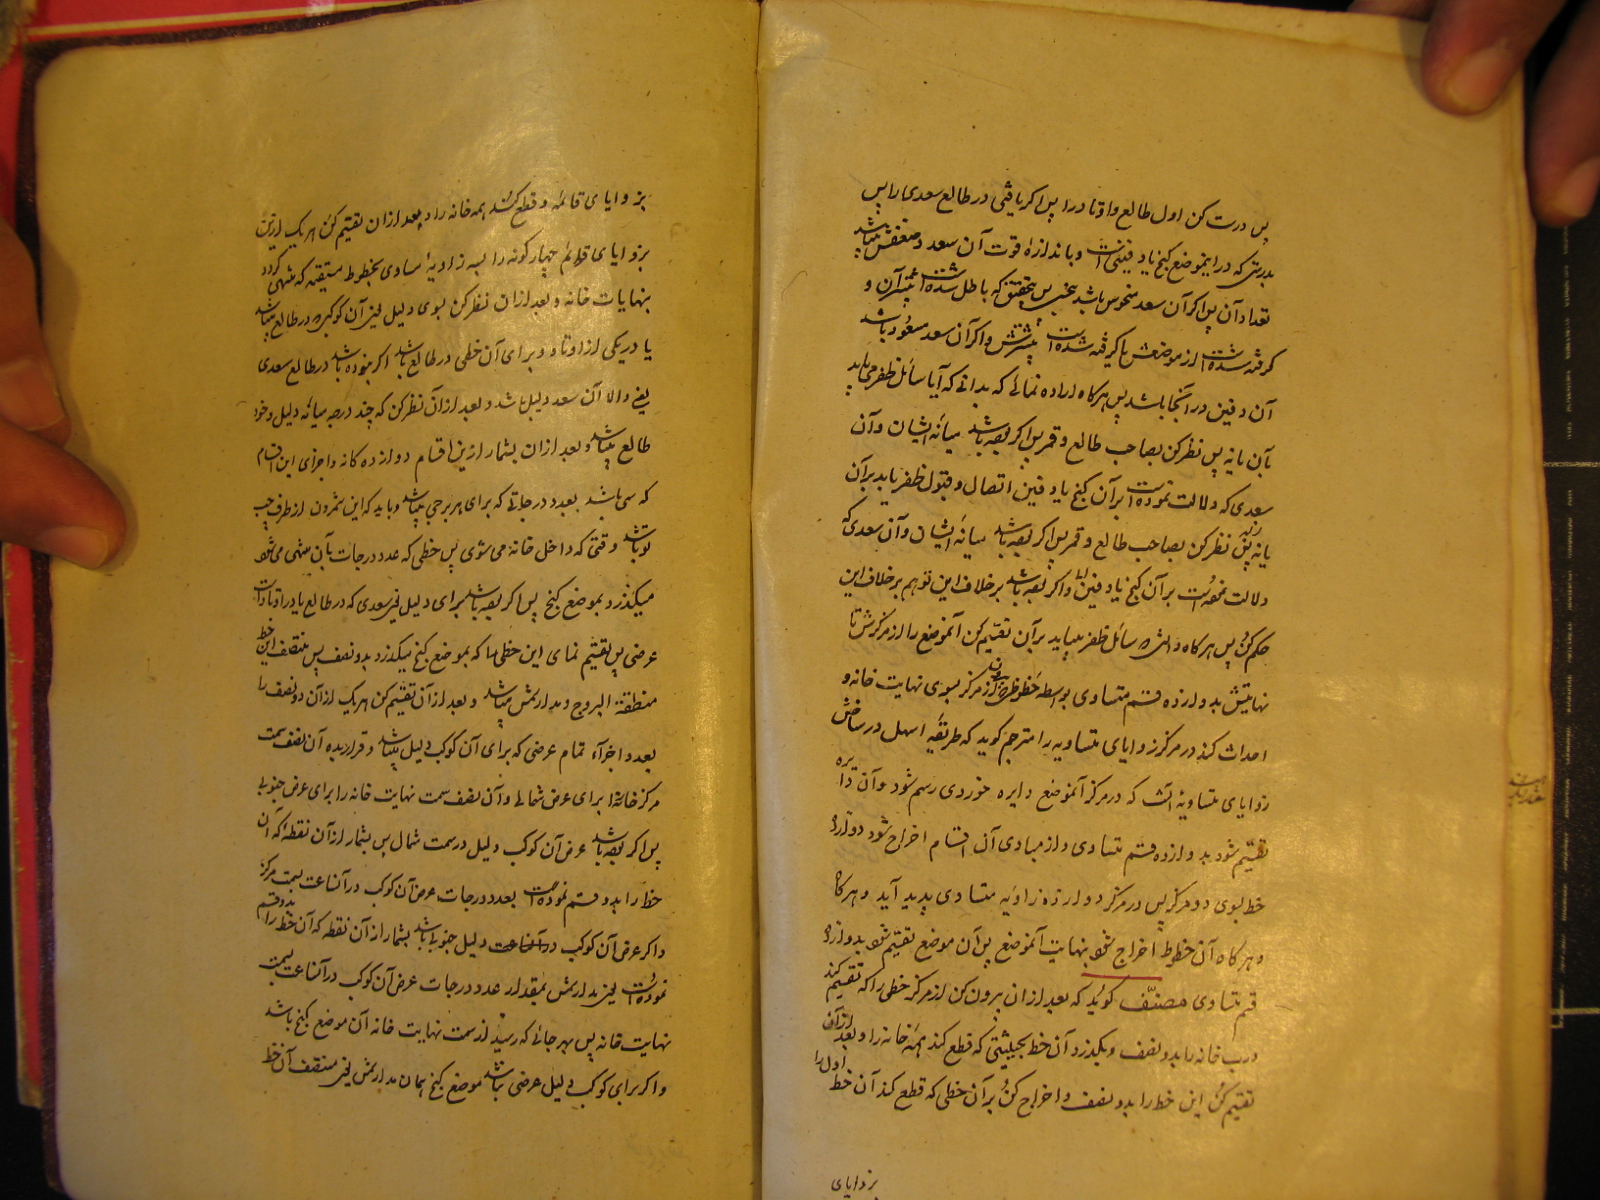 پس درست کن اول طالع و اوتاد را پس اگر یافتی در طالع سعدی را پس
بدرستی که در این موضع گنج یا دفینی است و باندازه قوت آن سعد و ضعفش میباشد
تعداد آن پس اگر آن سعد منحوس باشد بنحسی پس بتحقیق که باطل شده است بیشتر آن و
گرفته شده است از موضعش یا گرفته شده است بیشترش و اگر آن سعد مسعود باشد
آن دفین در آنجا باشد پس هرگاه اراده نمائی که بدانی که آیا سائل ظفر می یابد
بآن یا نه پس نظر کن بصاحب طالع و قمر پس اگر بوده باشد میانه ایشان و آن
سعدی که دلالت نموده است بر آن گنج یا دفین اتصال و قبول ظفر یابد بر آن
یا نه پس نظر کن بصاحب طالع و قمر پس اگر بوده باشد میانه ایشان و آن سعدی که
دلالت نموده است بر آن گنج یا دفین و اگر بوده باشد بر خلاف این تو هم بر خلاف این
حکم کن پس هرگاه دانی که سائل ظفر مییابد بر آن تقسیم کن آنموضع را از مرکزش تا
نهایتش بدوازده قسم متساوی بواسطه خطوط از مرکز بسوی نهایت خانه و
احداث کند در مرکز زوایای متساویه را مترجم گوید که طریقه اسهل در ساختن
زوایای متساویه آنست که در مرکز آنموضع دایره خوردی رسم شود و آن دایره
تقسیم شود بدوازده قسم متساوی و از مبادی آن اقسام اخراج شود دوازده
خط بسوی دو مرکز پس در مرکز دوازده زاویه متساوی پدید آید و هرگاه
و هرگاه آن خطوط اخراج شود بنهایت آنموضع پس آن موضع تقسیم شود بدوازده
قسم متساوی مصنف گوید که بعد از ان بیرون کن از مرکز خطی را که تقسیم کند
درب خانه را بدو نصف و بگذرد آن خط بحیثیتی که قطع کند همه خانه را و بعد از آن
تقسیم کن این خط را بدو نصف و اخراج کن بر آن خطی که قطع کند آن خط اول را
بزوایای
بزوایای قائمه و قطع کند همه خانه را و بعد از ان تقسیم کن هر یک از این
بزوایای قوائم چهارگونه را بسه زاویه متساوی بخطوط مستقیمه که منتهی گردد
بنهایات خانه و بعد از ان نظر کن بسوی دلیل یعنی آن کوکبی که در طالع میباشد
یا در یکی از اوتاد و برای آن خطی در طالع باشد اگر بنوده باشد در طالع سعدی
یعنی والا آن سعد دلیل باشد و بعد از آن نظر کن که چند درجه میانه دلیل و خود
طالع میباشد و بعد از ان بشمار از این اقسام دوازده گانه و اجزای این اقسام
که سی باشد بعدد درجاتی که برای هر برجی میباشد و باید که این شمردن از طرف چپ
تو باشد وقتی که داخل خانه می شوی پس خطی که عدد درجات بآن منتهی می شود
میگذرد بموضع گنج پس اگر بوده باشد برای دلیل یعنی سعدی که در طالع یا در اوتاد است
عرضی پس تقسیم نمای این خطی را که بموضع گنج میگذرد بدو نصف پس منتصف این خط
منطقة البروج و مدارتش میباشد و بعد از آن تقسیم کن هر یک از آن دو نصف را
بعدد اجزاء تمام عرضی که برای آن کوکب دلیل میباشد و قرار بده آن نصف سمت
مرکز خانه را برای عرض شمالی و آن نصف سمت نهایت خانه را برای عرض جنوبی
پس اگر بوده باشد عرض آن کوکب دلیل در سمت شمال پس بشمار از آن نقطه که آن
خط را بدو قسم نموده است بعدد درجات عرض آن کوکب در آنساعت بسمت مرکز
و اگر عرض آن کوکب در آنساعت دلیل جنوبی باشد بشمار از آن نقطه که آن خط را بدو قسم
نموده است یعنی مدارتش بمقدار عدد درجات عرض آن کوکب در آنساعت بسمت
نهایت خانه پس بهر جائی که رسید از سمت نهایت خانه آن موضع گنج باشد
و اگر برای کوکب دلیل عرضی نباشد موضع گنج همان مدارتش یعنی منتصف آن خط